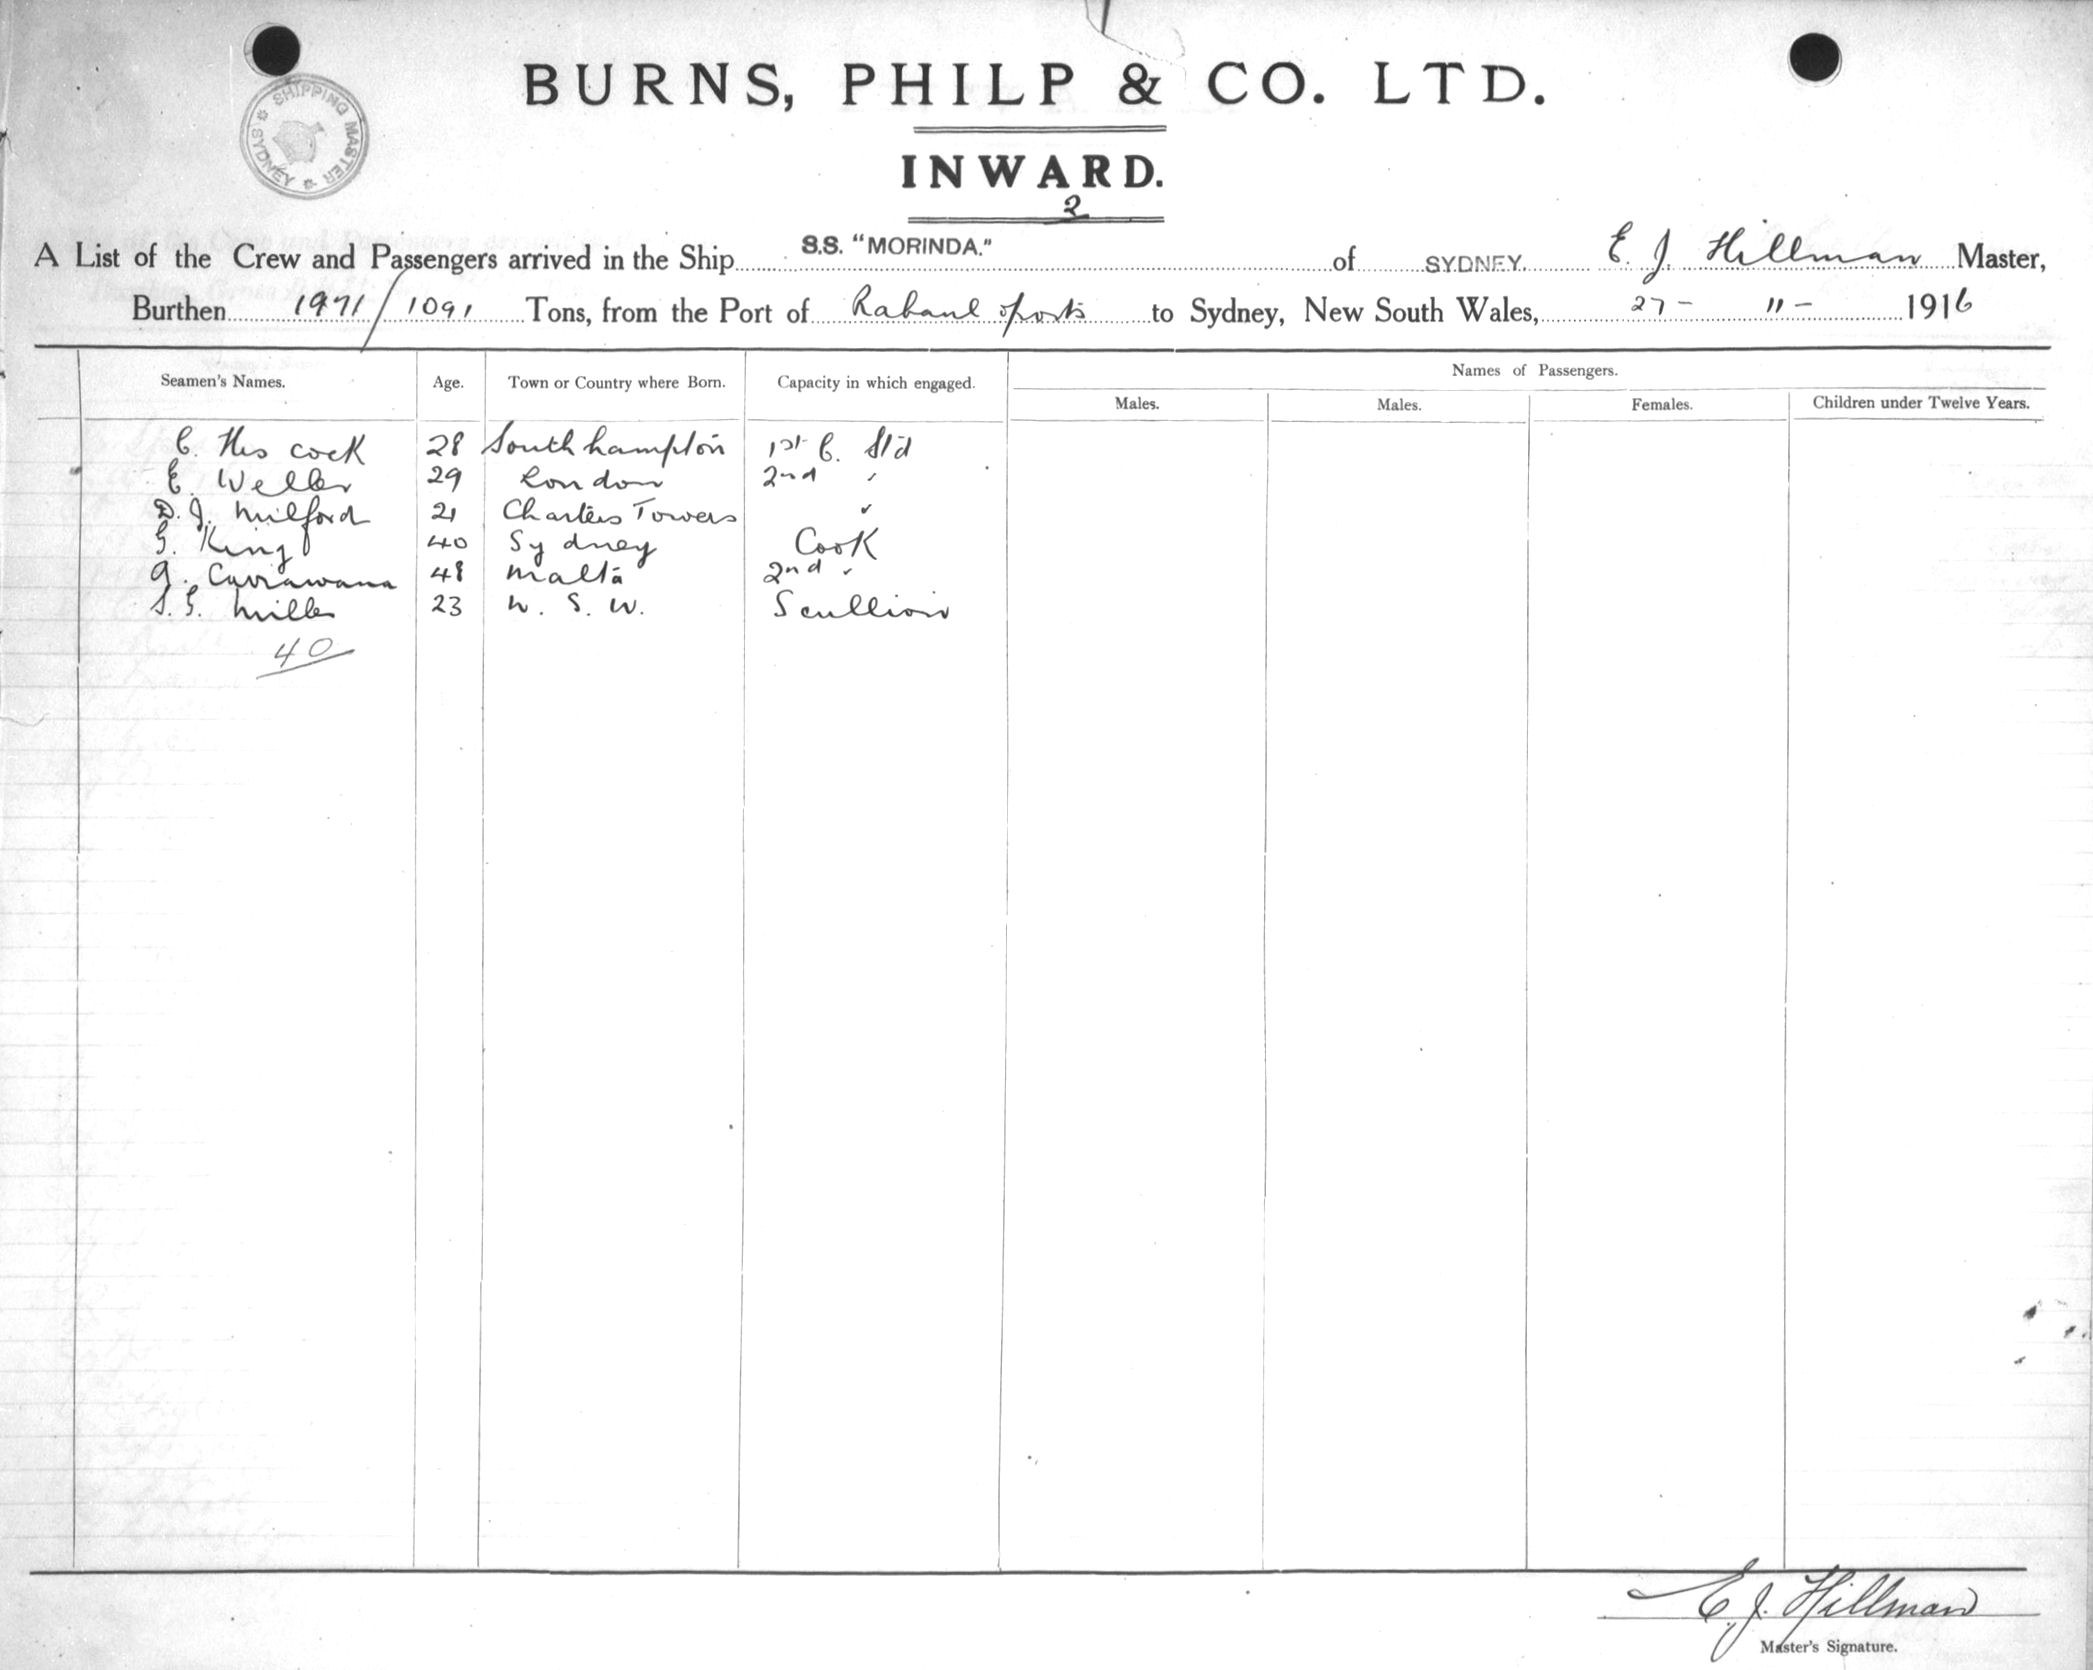 BURNS, PHILP & CO. LTD.
SHIPPING MASTER SYDNEY
INWARD.
2
A List of the Crew and Passengers arrived in the Ship S.S. "MORINDA." of SYDNEY. E. J. Hillman Master,
Burthen 1971/1091 Tons, from the Port of Rabaul & ports to Sydney, New South Wales, 27 - 11 - 1916
Seamen's Names. Age. Town or Country where Born. Capacity in which engaged. Names of Passengers.
Males. Males. Females. Children under Twelve Years.
C. Hiscock 28 Southhampton 1st C. Std
E. Weller 29 London 2nd "
D. J. Milford 21 Charters Towers "
G. King 40 Sydney Cook
48 Malta 2nd "
S. G. Miller 23 N. S. W. Scullion
40
E. J. Hillman
Master's Signature.